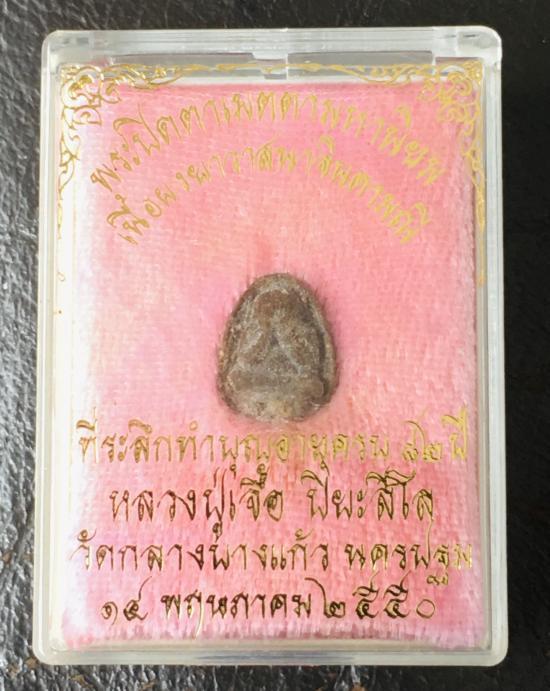 พระปิดตาเมตตามหาพิมพ์
เนื้อผงยาวาสนาจินดามณี
ที่ระลึกทำบุญอายุครบ ๘๒ ปี
หลวงปู่เจือ ปิยะสีโล
วัดกลางบางแก้ว นครปฐม
๑๕ พฤษภาคม ๒๕๕๐